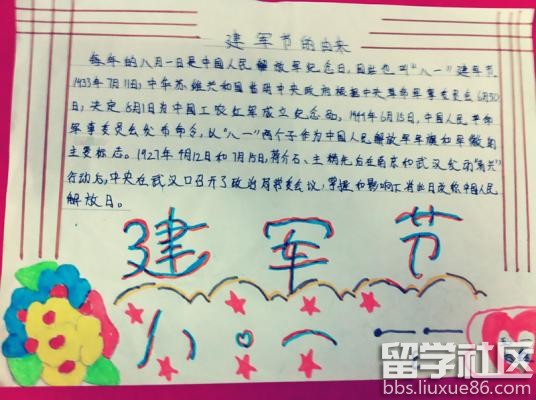 建军节的由来
每年的八月一日是中国人民解放军纪念日,因此也叫"八一"建军节.
1933年7月11日,中华苏维共和国临时中央政府根据中央革命军事委员会6月30
日,决定8月1日为中国工农红军成立纪念日。1949年6月15日,中国人民革命
军事委员会发布命令,以"八一"两个子作为中国人民解放军军旗和军徽的
主要标志。1927年4月12日和7月15日,蒋介石、主精先后在南京和武汉发动
行动后,中央在武汉口召开了政治局常委会议,中国人民
解放日。
建军节
八。一
留学社区
bbs.liuxue86.com